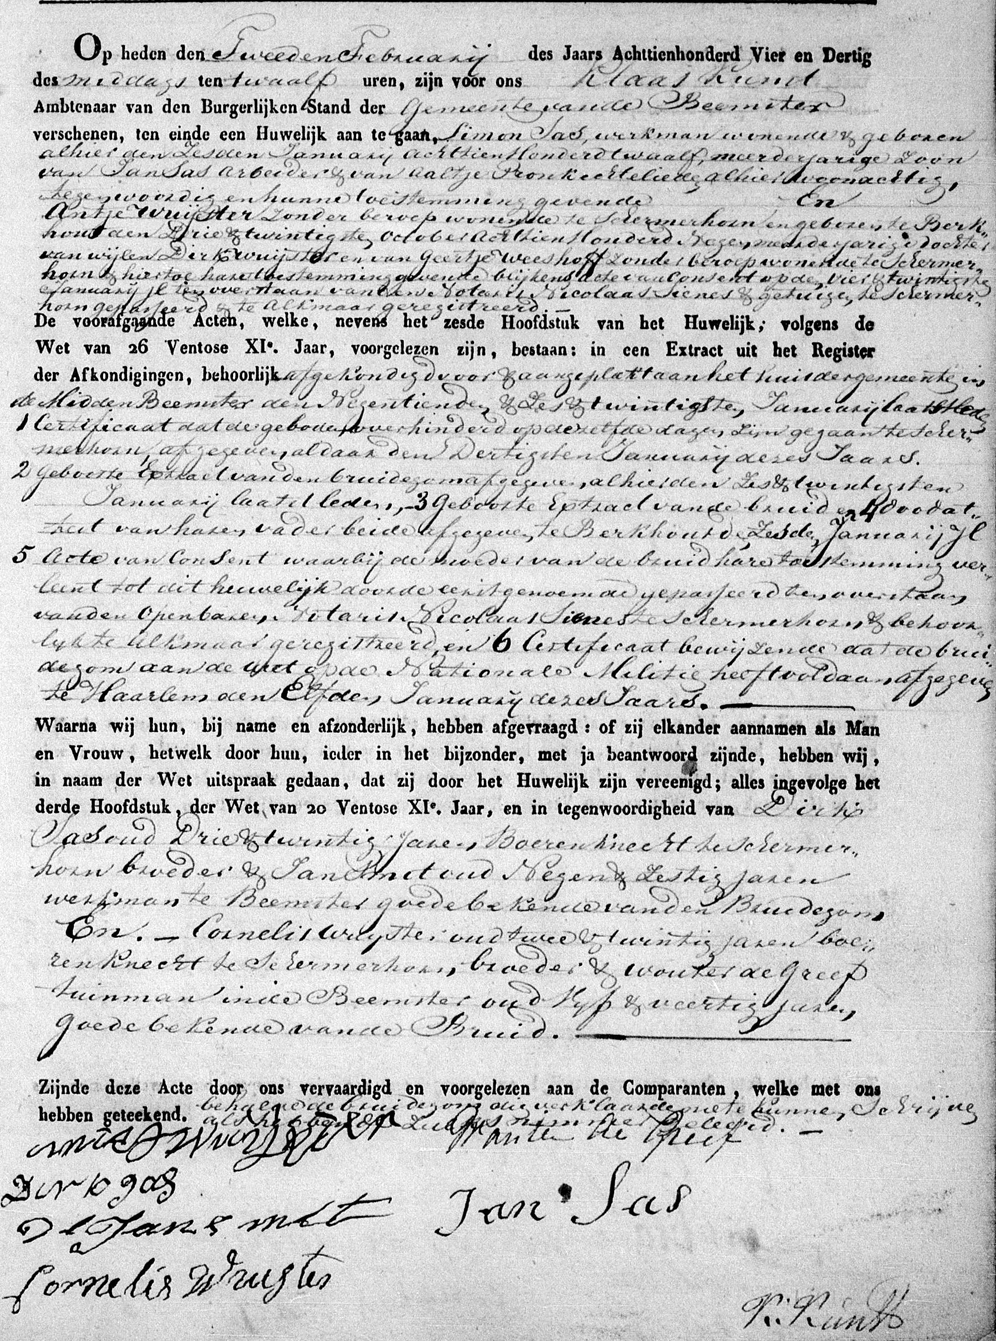 Op heden den Tweeden Februarij des Jaars Achttienhonderd Vier en Dertig
des middags ten twaalf uren, zijn voor ons Klaas Kunst
Ambtenaar van den Burgerlijken Stand der Gemeente van de Beemster
verschenen, ten einde een Huwelijk aan te gaan, Simon Sas, werkman wonende & geboren
alhier den Zesden Januarij Achttien Honderd twaalf, meerderjarige Zoon
van Jan Sas Arbeider & van Aaltje Pronk echtelieden alhier woonachtig,
tegenwoordig en hunne toestemming gevende En
Antje Wuijster Zonder beroep wonende te Schermerhorn en geboren te Berk-
hout den Drie & twintigsten October Achttien Honderd Negen, meerderjarige dochter
van wijlen Dirk Wuijster en van Geertje Weeshoff Zonder beroep wonende te Schermer-
horn & hiertoe hare toestemming gevende blijkens acte van Consent op den vier & twintigste
Januarij jl ten overstaan van den Notaris Nicolaas Sienes & getuigen te Schermer-
horn gepasseerd & te Alkmaar geregistreerd. —
De voorafgaande Acten, welke, nevens het zesde Hoofdstuk van het Huwelijk, volgens de
Wet van 26 Ventose XIe. Jaar, voorgelezen zijn, bestaan: in een Extract uit het Register
der Afkondigingen, behoorlijk afgekondigd voor & aangeplakt aan het huis der gemeente in
de Midden Beemster den Negentienden & Zes & twintigsten Januarij laatstleden
1 Certificaat dat de geboden onverhinderd op dezelfde dagen zijn gegaan te Scher-
merhorn, afgegeven aldaar den Dertigsten Januarij dezes Jaars.
2 Geboorte Extract van den bruidegom afgegeven alhier den Zes & twintigsten
Januarij laatstleden, 3 Geboorte Extract van de bruid en 4 dood at-
test van haren vader beide afgegeven te Berkhout de Zesden Januarij Jl
5 Acte van Consent waarbij de moeder van de bruid hare toestemming ver-
leent tot dit huwelijk door de eerstgenoemde gepasseerd ten overstaan
van den Openbaren Notaris Nicolaas Sienes te Schermerhorn, & behoor-
lijk te Alkmaar geregistreerd, en 6 Certificaat bewijzende dat de brui-
degom aan de wet op de Nationale Militie heeft voldaan, afgegeven
te Haarlem den Elfden Januarij dezes Jaars.
Waarna wij hun, bij name en afzonderlijk, hebben afgevraagd: of zij elkander aannamen als Man
en Vrouw, hetwelk door hun, ieder in het bijzonder, met ja beantwoord zijnde, hebben wij,
in naam der Wet uitspraak gedaan, dat zij door het Huwelijk zijn vereenigd; alles ingevolge het
derde Hoofdstuk, der Wet van 20 Ventose XIe. Jaar, en in tegenwoordigheid van Dirk
Sas oud Drie & twintig Jaren Boerenknecht te Schermer-
horn broeder & Jan Smit oud Negen & Zestig jaren
werkman te Beemster goede bekende van den Bruidegom
En. — Cornelis Wuijster oud twee & twintig jaren boe-
renknecht te Schermerhorn, broeder & Wouter de Greef
tuinman in de Beemster oud Vijf & veertig jaren,
goede bekende van de Bruid.
Zijnde deze Acte door ons vervaardigd en voorgelezen aan de Comparanten, welke met ons
hebben geteekend. behalve de bruidegom die verklaarde niet te kunnen Schrijven
als hebbende Zulks nimmer geleerd. —
Wouter de Greef
Dirk Sas
Jan Smit
Jan Sas
Cornelis Wuijster
K. Kunst